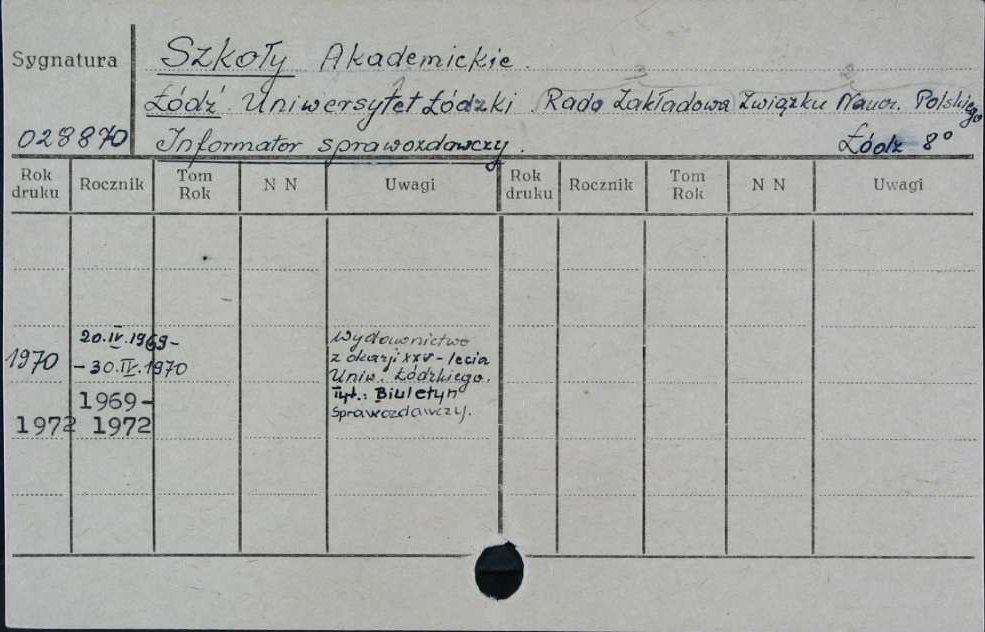 Sygnatura
Szkoły Akademickie.
Łódź. Uniwersytet Łódzki. Rada Zakładowa Związku Naucz. Polskiego
028870 Informator sprawozdawczy. Łódź 8°
Rok druku Rocznik Tom Rok N N Uwagi Rok druku Rocznik Tom Rok N N Uwagi
20.IV.1969- Wydawnictwo
1970 -30.IV.1970 z okazji XXV-lecia
Uniw. Łódzkiego.
1969- Tyt.: Biuletyn
1972 1972 Sprawozdawczy.